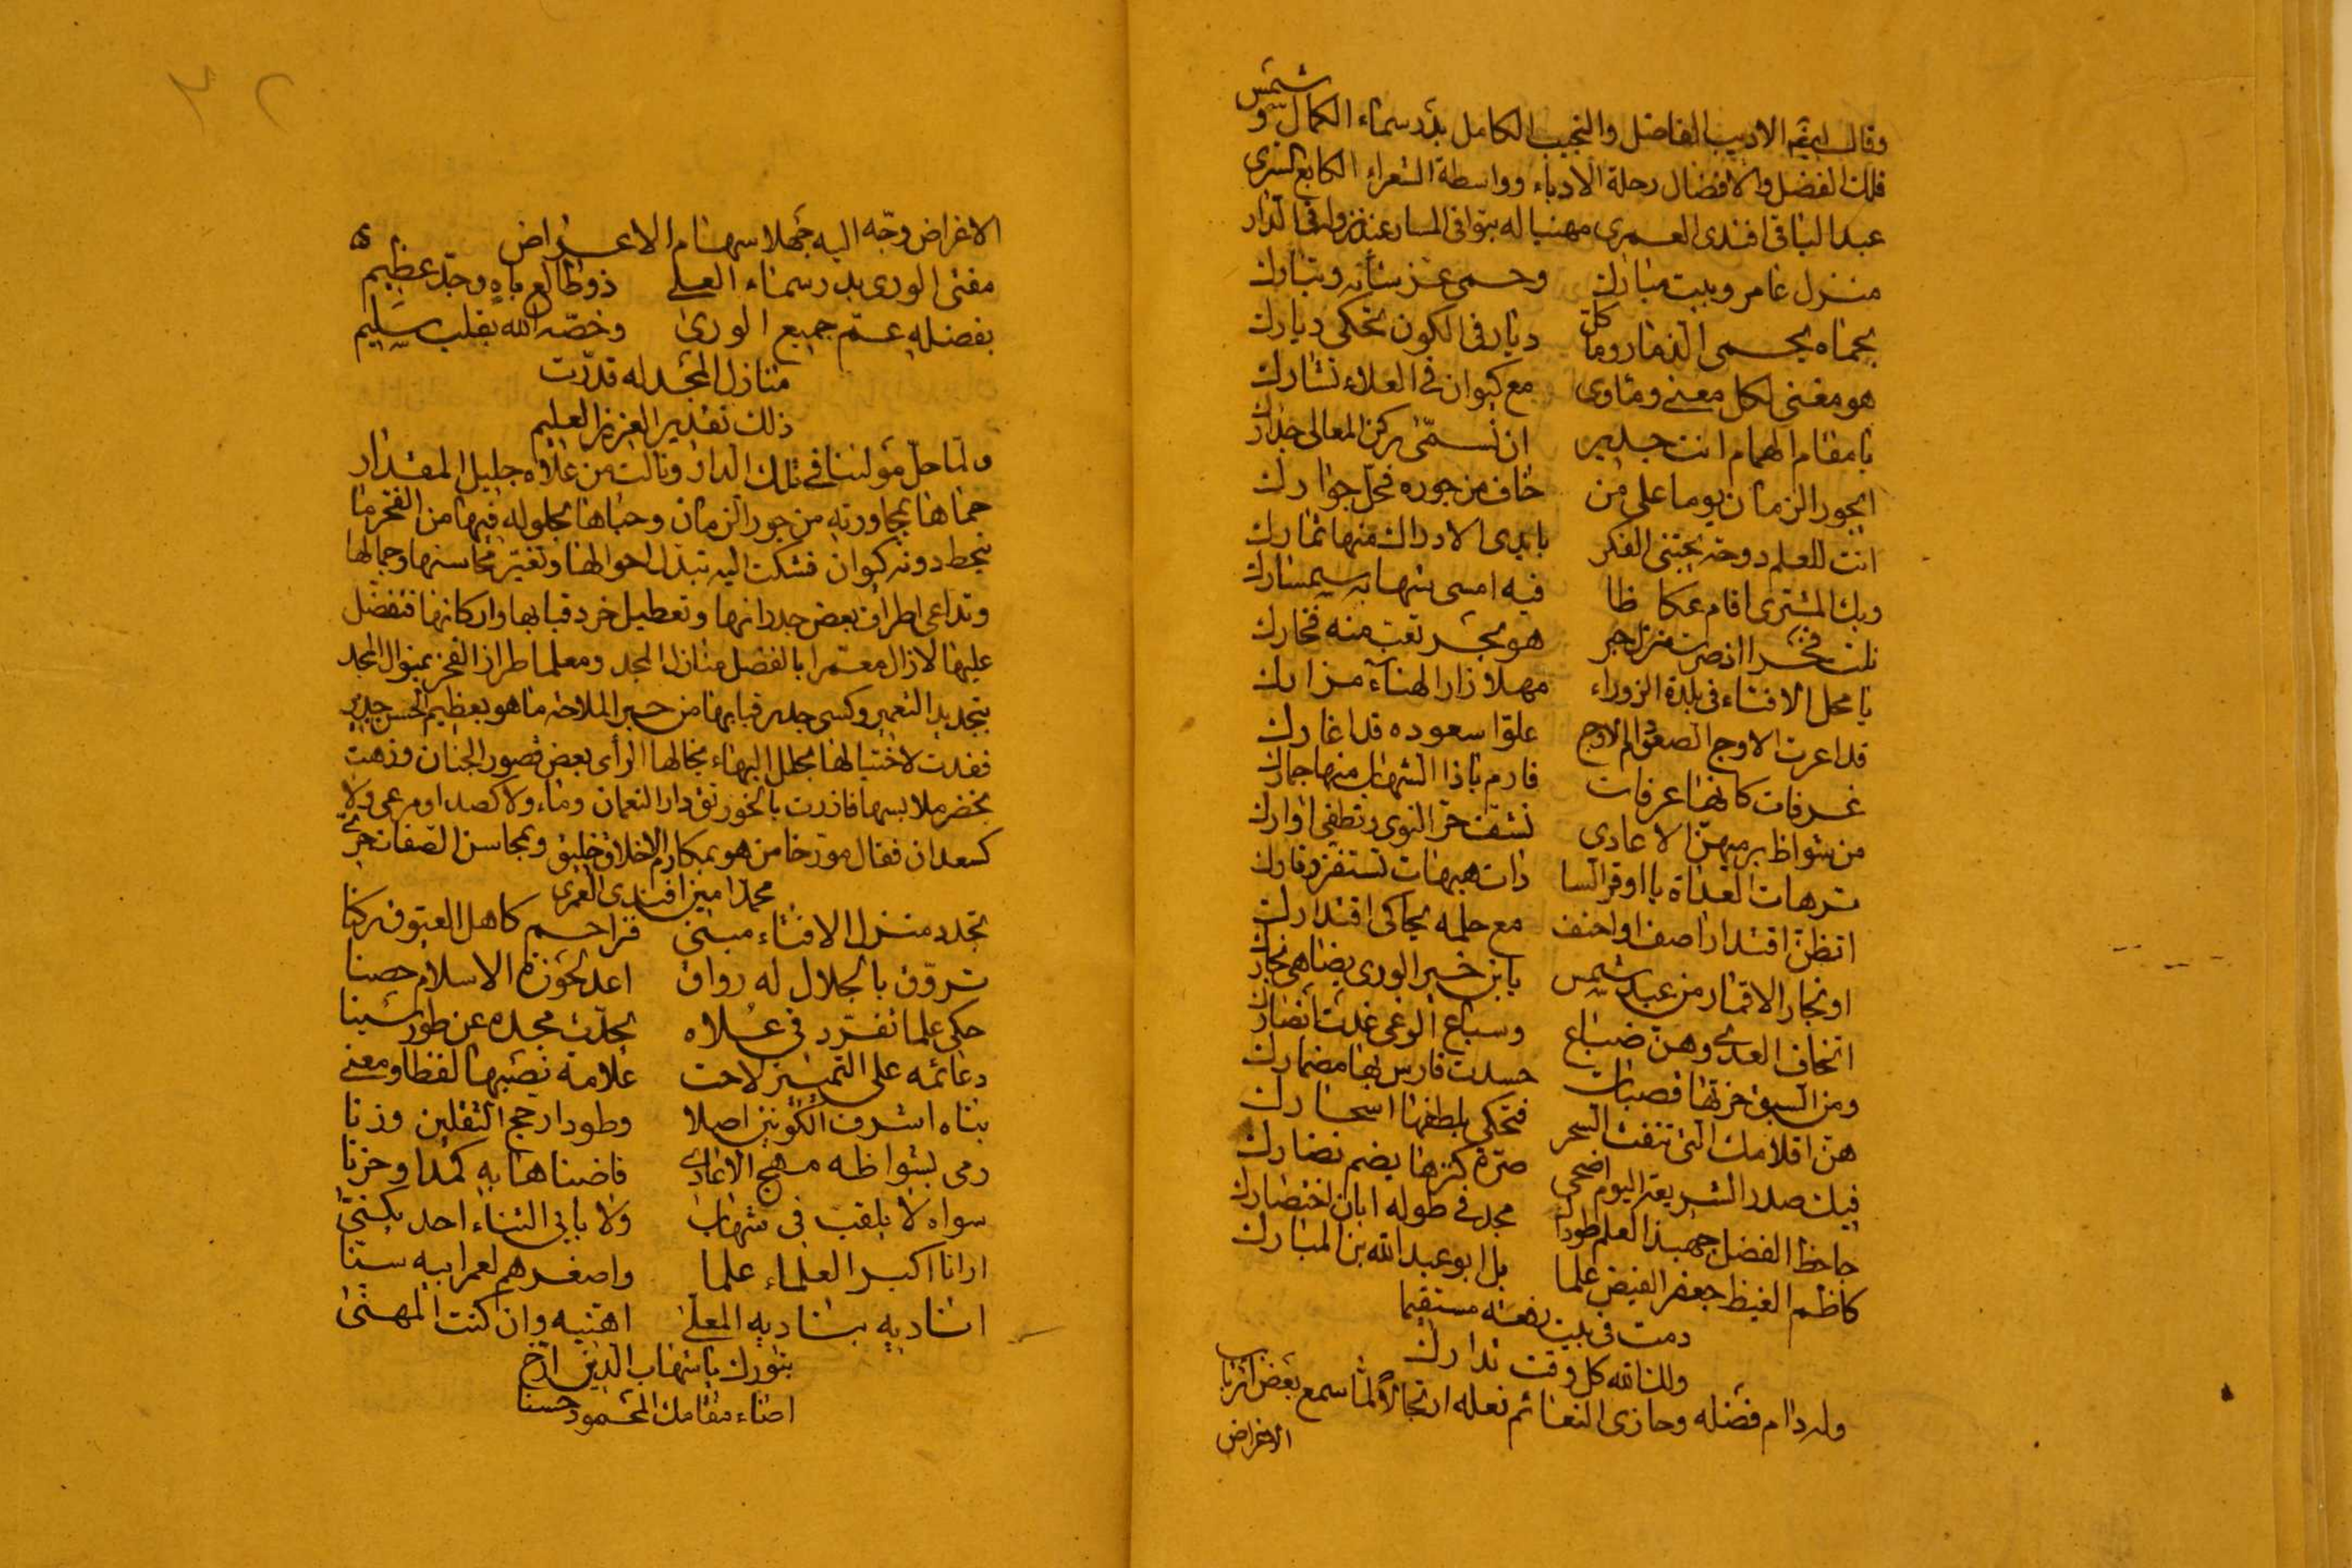 وقال ايضه الاديب الفاضل والنجيب الكامل بدر سماء الكمال وشمس
فلك الفضل والافضال رحلة الادباء وواسطة الشعراء السري
عبد الباقي افندي العمري مهنيا له بتوافى المسار عند نزوله في الدار
منزل عامر وبيت مبارك وحمى عز شأنه وتبارك
بحماه يحمى الذمار وما كل ديار في الكون تحكي ديارك
هو مغنى لكل معنى ومأوى مع كيوان في العلاء تشارك
يا مقام الهمام انت جدير ان تسمى بركن المعالي جدارك
ايجور الزمان يوما على من خاف من جوره فحل جوارك
انت للعلم دوحة يجتني الفكر بايدي الادراك منها ثمارك
وبك المشتري اقام عكاظا فيه امسى شهابه سمسارك
نلت فخرا اذ صرت منزل حبر هو بحر نعت منه فخارك
يا محل الافتاء في بلدة الزوراء مهلا زار الهناء مزارك
قد اعرت الاوج علوا سعوده قد اغارك
غرفات كانها عرفات فارم يا ذا الشهاب منها جمارك
من شواظ يرميهن الاعادي نشقت حر النوى وتطفي اوارك
ترهات العداة يا اوقر السا دات هيهات تستفز وقارك
اتظن اقتدار اصف او احنف مع حلمه يحاكي اقتدارك
او نجار الاقمار من عبد شمس يا بن خير الورى يضاهي نجارك
اتخاف العدى وهن ضباع وسباع الوغى غدت انصارك
ومن السبق حزتها قصبات حسدت فارس بها مضمارك
هن اقلامك التي تنفث السحر فتحكي بلطفها اسحارك
فيك صدر الشريعة اليوم اضحى صرة كنزها يضم نضارك
جاحظ الفضل جهبذ العلم طودا مجد في طوله ابان اختصارك
كاظم الغيظ جعفر الفيض علما بل ابو عبد الله بن المبارك
دمت في بيت رفعة مستقيما
ولك الله كل وقت تدارك
وله دام فضله وحازى النعائم نعله ارتجالا لما سمع بعض ارباب
الاغراض
الاغراض وجه اليه جهلا سهام الاعراض
مفتى الورى بدر سماء العلى ذو طالع باه وجد عظيم
بفضله عم جميع الورى وخصه الله بقلب سليم
منازل المجد له قدرت
ذلك تقدير العزيز العليم
ولما حل مولانا في تلك الدار ونالت من علاه جليل المقدار
حماها بمجاورته من جور الزمان وحباها بحلوله فيها من الفخر ما
ينحط دونه كيوان فشكت اليه تبدل احوالها وتغير محاسنها وجمالها
وتداعى اطراف بعض جدرانها وتعطيل خرد قبابها واركانها فتفضل
عليها لازال معمرا بالفضل منازل المجد ومعلما طراز الفخر بمنوال المجد
بتجديد التعمير وكسى جدير قبابها من حبر الملاحة ما هو بعظيم الحسن جدير
فغدت لاختيالها بحلل البهاء يخالها الرأى بعض قصور الجنان وزهت
بخضر ملابسها فازرت بالخورنق دار النعمان وماء ولا كصدا ومرعى ولا
كسعدان فقال مورخا من هو بمكارم الاخلاق خليق وبمحاسن الصفات حري
محمد امين افندي العمري
تجدد منزل الافتاء مبنى فزاحم كاهل العيوق ركنا
تروق بالجلال له رواق اعد لحوزة الاسلام حصنا
حكى علما تفرد في علاه يحدث مجده عن طور سينا
دعائمه على التمييز لاحت علامة نصبها لفظا ومعنى
بناه اشرف الكونين اصلا وطود ارجح الثقلين وزنا
رمى بشواظه مهج الاعادي فاضناها به كمدا وحزنا
سواه لا يلقب في شهاب ولا بابي الثناء احد يكنى
ارانا اكبر العلماء علما واصغرهم لعمر ابيه سنا
اناديه بناديه المعلى اهنيه وان كنت المهنى
بنورك يا شهاب الدين ارخ
اضاء مقامك المحمود حسنا